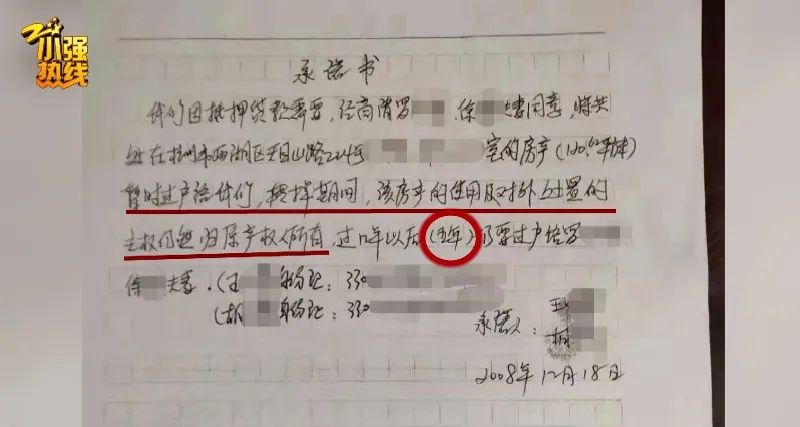 小强热线
承诺书
我们因抵押贷款需要，经商请罗 徐 夫妻同意，将其
处在杭州市西湖区天目山路224号 室的房产（120.62平方米）
暂时过户给我们，抵押期间，该房产的使用及对外处置的
主权仍然归原产权人所有，过 年以后（五年）仍要过户给罗
徐 夫妻．（王 身份证：330
（胡 身份证：330
承诺人：王
胡
2008年12月18日